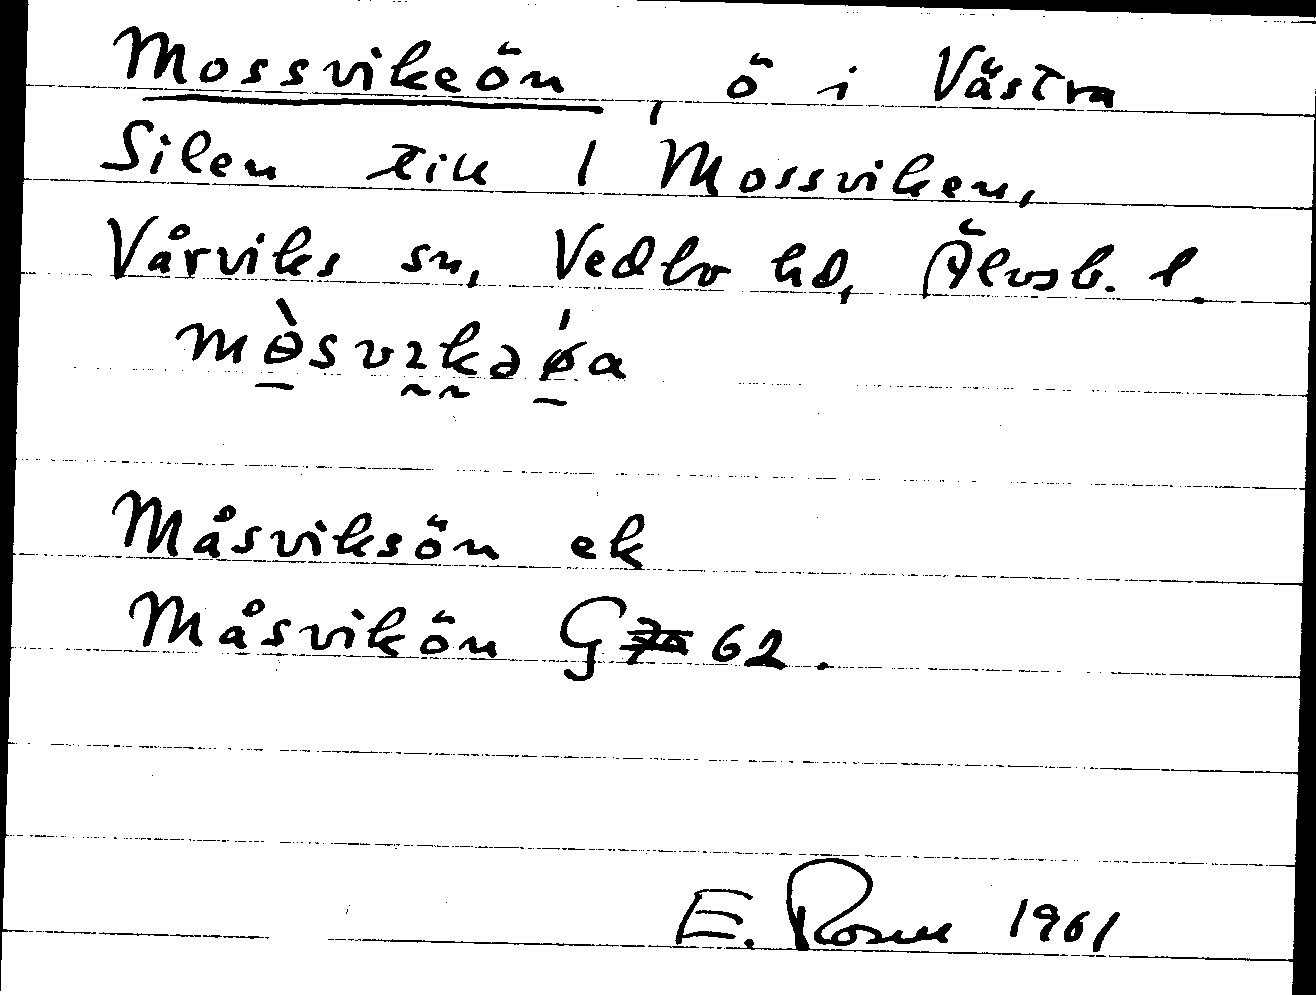 Mossvikeön, ö i Västra
Silen till 1 Mossviken,
Vårviks sn, Vedbo hd, Älvsb. l.
mɵ̀svɪkəǿa
Måsviksön ek
Måsvikön G 62.
E. Rosell 1961